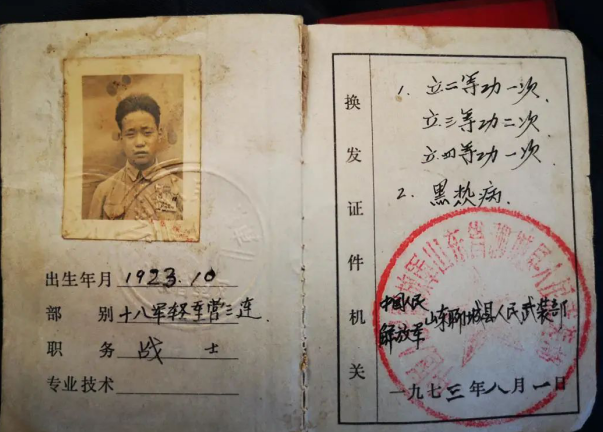 出生年月 1923.10
部别 十八军辎重营三连
职务 战士
专业技术
换发证件机关
1. 立二等功一次.
立三等功二次.
立四等功一次.
2. 黑热病.
中国人民
解放军山东聊城县人民武装部
一九七三年八月一日